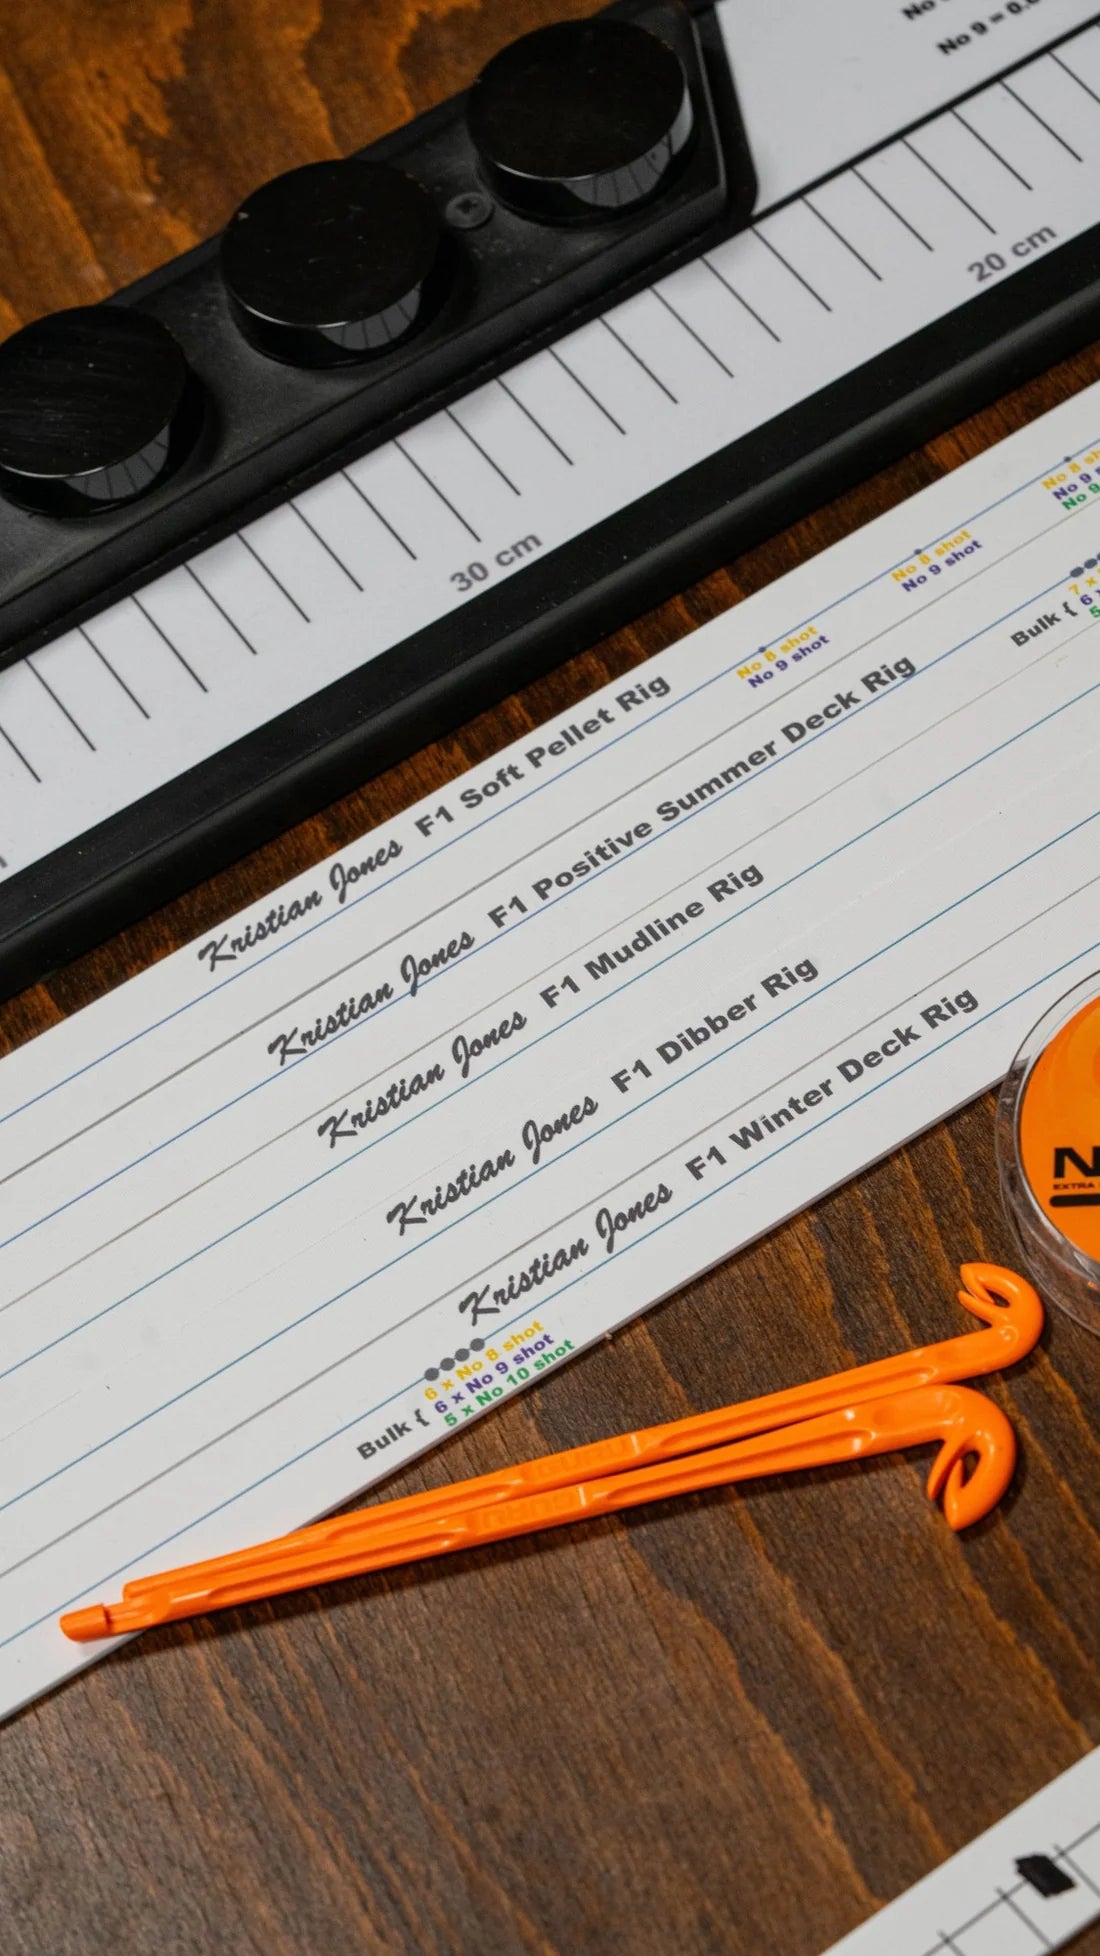 No 9 = 0.0
20 cm
30 cm
No 8 shot
No 9
No 9
No 8 shot
No 9 shot
7 x
6 x
5
Bulk {
No 8 shot
No 9 shot
Kristian Jones F1 Soft Pellet Rig
Kristian Jones F1 Positive Summer Deck Rig
Kristian Jones F1 Mudline Rig
Kristian Jones F1 Dibber Rig
Kristian Jones F1 Winter Deck Rig
6 x No 8 shot
6 x No 9 shot
5 x No 10 shot
Bulk {
EXTRA
GURU
GURU